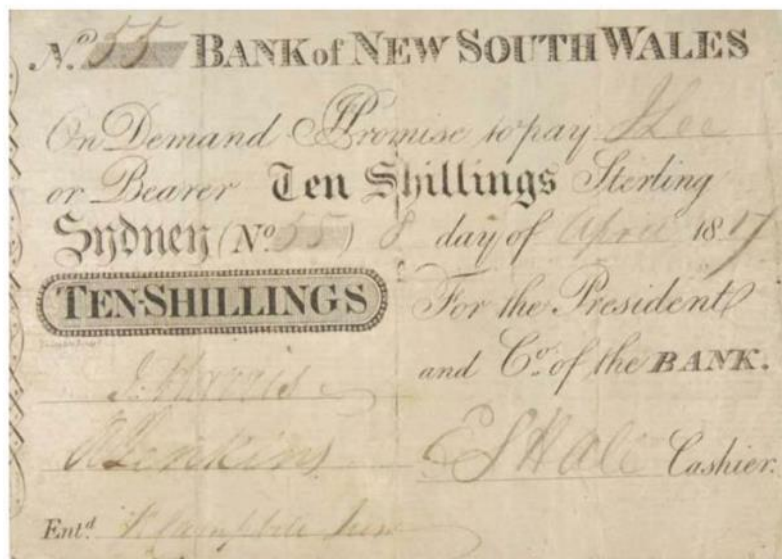 No. 55 BANK of NEW SOUTH WALES
On Demand I Promise to pay J Lee
or Bearer Ten Shillings Sterling
Sydney (No. 55) 8 day of April 1817
TEN-SHILLINGS For the President
and Co. of the BANK.
J. Harris
R Jenkins E S Hall Cashier.
Entd.